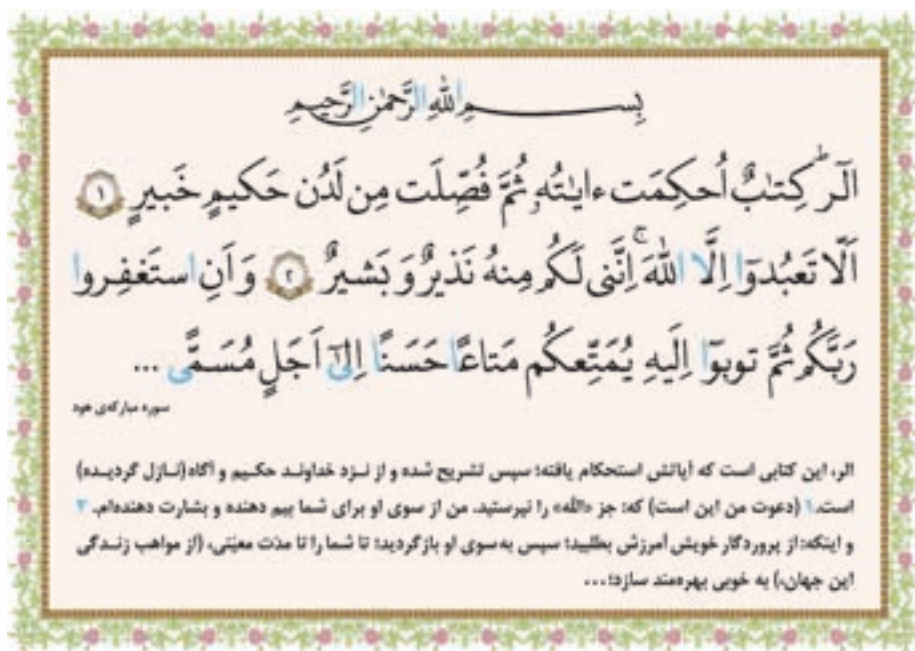 بِسمِ اللهِ الرَّحمٰنِ الرَّحیمِ
الٓرٰ کِتٰبٌ اُحکِمَت ءایٰتُهُ و ثُمَّ فُصِّلَت مِن لَدُن حَکیمٍ خَبیرٍ ۱
اَلّا تَعبُدوٓا اِلَّا اللهَ ۚ اِنَّنی لَکُم مِنهُ نَذیرٌ وَ بَشیرٌ ۲ وَ اَنِ استَغفِروا
رَبَّکُم ثُمَّ توبوٓا اِلَیهِ یُمَتِّعکُم مَتاعًا حَسَنًا اِلیٰٓ اَجَلٍ مُسَمًّی ...
سوره مبارکه‌ی هود
الر، این کتابی است که آیاتش استحکام یافته؛ سپس تشریح شده و از نزد خداوند حکیم و آگاه (نازل گردیده)
است. ۱ (دعوت من این است) که: جز «الله» را نپرستید. من از سوی او برای شما بیم دهنده و بشارت دهنده‌ام. ۲
و اینکه: از پروردگار خویش آمرزش بطلبید؛ سپس به سوی او بازگردید؛ تا شما را تا مدّت معیّنی، (از مواهب زندگی
این جهان،) به خوبی بهره‌مند سازد؛...